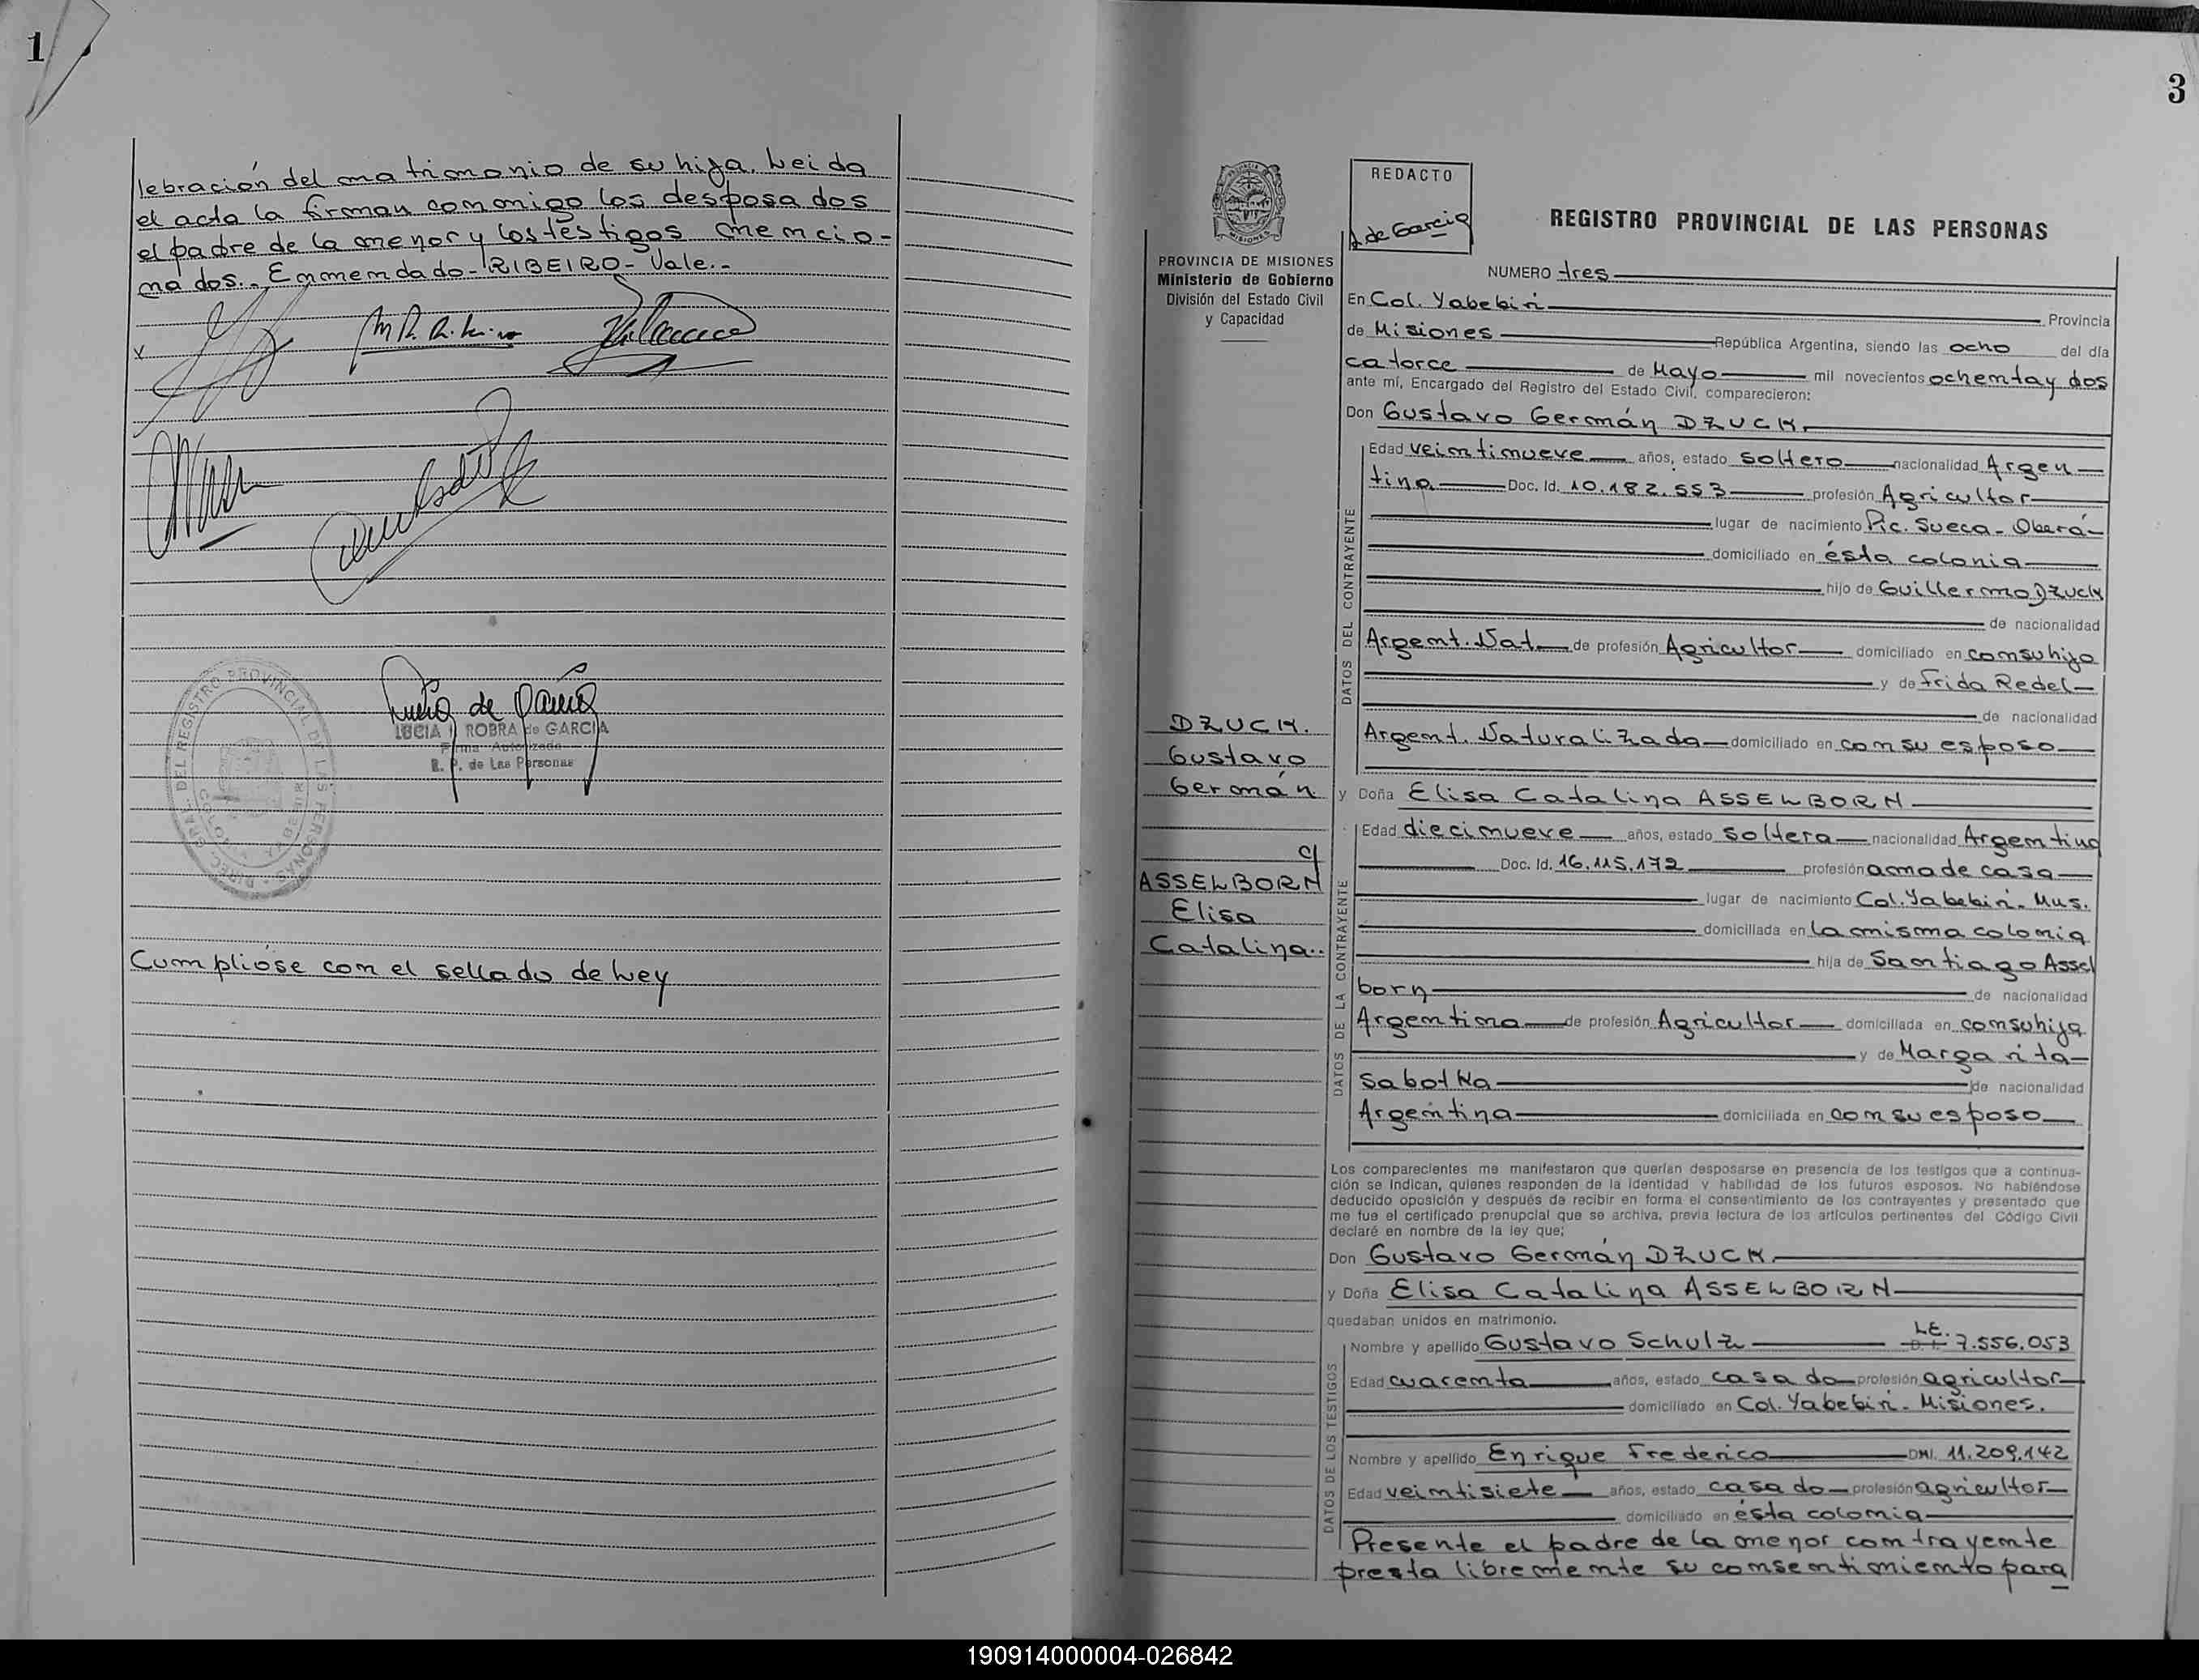 1
lebración del matrimonio de su hija. Leida
el acta la firman conmigo los desposados
el padre de la menor y los testigos mencio-
nados.. Enmendado-RIBEIRO-Vale.-
LUCIA ROBRA de GARCIA
Firma Autorizada
R. P. de Las Personas
Cumplióse con el sellado de Ley
3
REDACTO
L de García
REGISTRO PROVINCIAL DE LAS PERSONAS
PROVINCIA DE MISIONES
Ministerio de Gobierno
División del Estado Civil
y Capacidad
NUMERO tres
En Col. Yabebirí Provincia
de Misiones República Argentina, siendo las ocho del día
catorce de Mayo mil novecientos ochenta y dos
ante mí, Encargado del Registro del Estado Civil, comparecieron:
Don Gustavo Germán DZUCK.
DATOS DEL CONTRAYENTE
Edad veintinueve años, estado soltero nacionalidad Argen-
tina Doc. Id. 10.182.553 profesión Agricultor
lugar de nacimiento Pic. Sueca - Oberá-
domiciliado en ésta colonia
hijo de Guillermo Dzuck
de nacionalidad
Argent. Nat. de profesión Agricultor domiciliado en con su hijo
y de Frida Redel-
de nacionalidad
Argent. Naturalizada domiciliado en con su esposo
DZUCK.
Gustavo
Germán
c/
ASSELBORN
Elisa
Catalina..
y Doña Elisa Catalina ASSELBORN
DATOS DE LA CONTRAYENTE
Edad diecinueve años, estado soltera nacionalidad Argentina
Doc. Id. 16.115.172 profesión ama de casa
lugar de nacimiento Col. Yabebirí. Mns.
domiciliada en la misma colonia
hija de Santiago Assel
born de nacionalidad
Argentina de profesión Agricultor domiciliada en con su hija
y de Margarita-
Sabotka de nacionalidad
Argentina domiciliada en con su esposo
Los comparecientes me manifestaron que querían desposarse en presencia de los testigos que a continua-
ción se indican, quienes responden de la identidad y habilidad de los futuros esposos. No habiéndose
deducido oposición y después de recibir en forma el consentimiento de los contrayentes y presentado que
me fue el certificado prenupcial que se archiva, previa lectura de los artículos pertinentes del Código Civil
declaré en nombre de la ley que;
Don Gustavo Germán DZUCK.
y Doña Elisa Catalina ASSELBORN
quedaban unidos en matrimonio.
DATOS DE LOS TESTIGOS
Nombre y apellido Gustavo Schulz L.E. 7.556.053
Edad cuarenta años, estado casado profesión agricultor
domiciliado en Col. Yabebirí - Misiones.
Nombre y apellido Enrique Frederico DNI. 11.209.142
Edad veintisiete años, estado casado profesión agricultor
domiciliado en ésta colonia
Presente el padre de la menor contrayente
presta libremente su consentimiento para
190914000004-026842